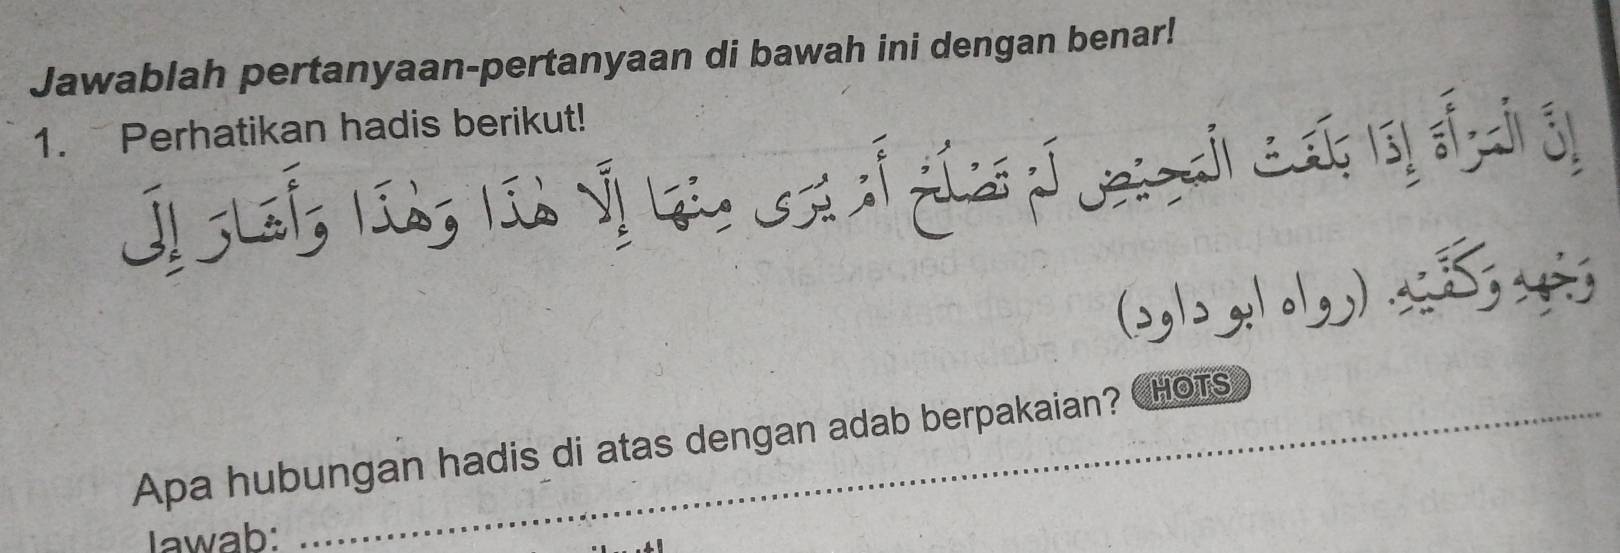 Jawablah pertanyaan-pertanyaan di bawah ini dengan benar!
1. Perhatikan hadis berikut!
إِنَّ الْمَرْأَةَ إِذَا بَلَغَتْ الْمَحِيْضِ لَمْ تَصْلُحْ أَمْ يُرَى مِنْهَا إِلَّا هٰذَا وَهٰذَا وَأَشَارَ إِلَى
وَجْهِهِ وَكَفَّيْهِ. (رواه ابو داود)
Apa hubungan hadis di atas dengan adab berpakaian? HOTS
Jawab: